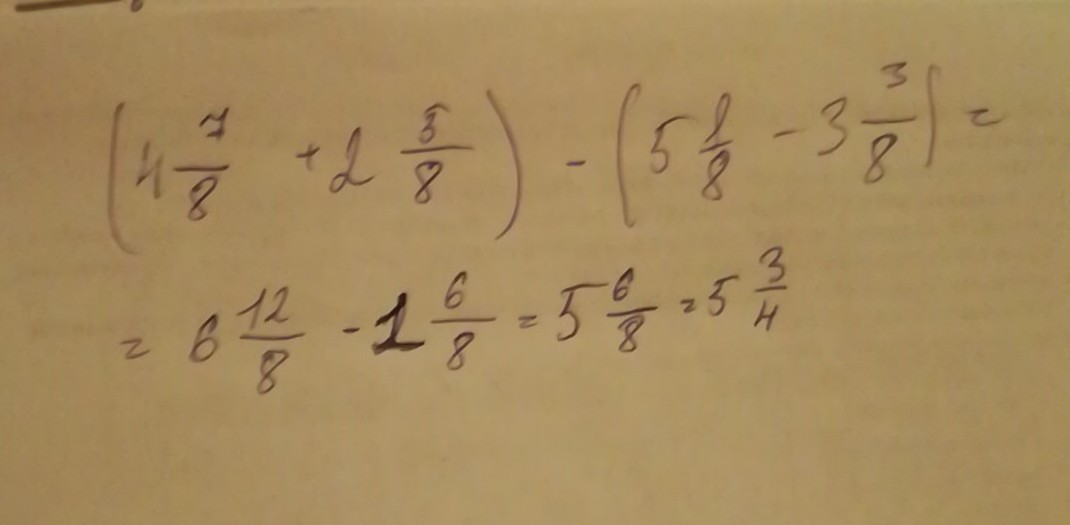 (4 7/8 + 2 5/8) - (5 1/8 - 3 3/8) =
= 6 12/8 - 1 6/8 = 5 6/8 = 5 3/4